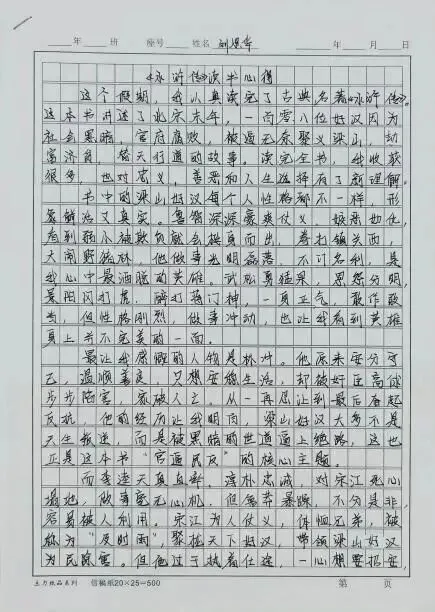 年 班 座号 姓名 刘 年 月 日
《水浒传》读书心得
这个假期，我认真读完了古典名著《水浒传》。
这本书讲述了北宋末年，一百零八位好汉因为
社会黑暗，官府腐败，被逼无奈聚义梁山，劫
富济贫，替天行道的故事。读完全书，我收获
很多，也对忠义，善恶和人生选择有了新理解。
书中的梁山好汉每个人性格都不一样，形
象鲜活又真实。鲁智深深豪爽仗义，嫉恶如仇，
看到弱小被欺负就会挺身而出，拳打镇关西，
大闹野猪林，他做事光明磊落，不计名利，是
我心中最洒脱的英雄。武松勇猛果，恩怨分明，
景阳冈打虎，醉打蒋门神，一身正气，敢作敢
当，但性格刚烈，做事冲动，也让我看到英雄
身上并不完美的一面。
最让我感慨的人物是林冲。他原来安分守
己，温顺善良，只想安稳生活，却被奸臣高俅
步步陷害，家破人亡。从一再忍让到最后奋起
反抗，他的经历让我明白，梁山好汉大多不是
天生叛逆，而是被黑暗的世道逼上绝路，这也
正是这本书“官逼民反”的核心主题。
而李逵天真直率，淳朴忠诚，对宋江死心
塌地，做事毫无心机，但鲁莽暴躁，不分是非，
容易被人利用。宋江为人仗义，体恤兄弟，被
称为“及时雨”，聚拢天下好汉，带领梁山好汉
为民除害。但他过于执着仕途，一心想要招安，
主力纸品系列 信稿纸20×25=500 第 页